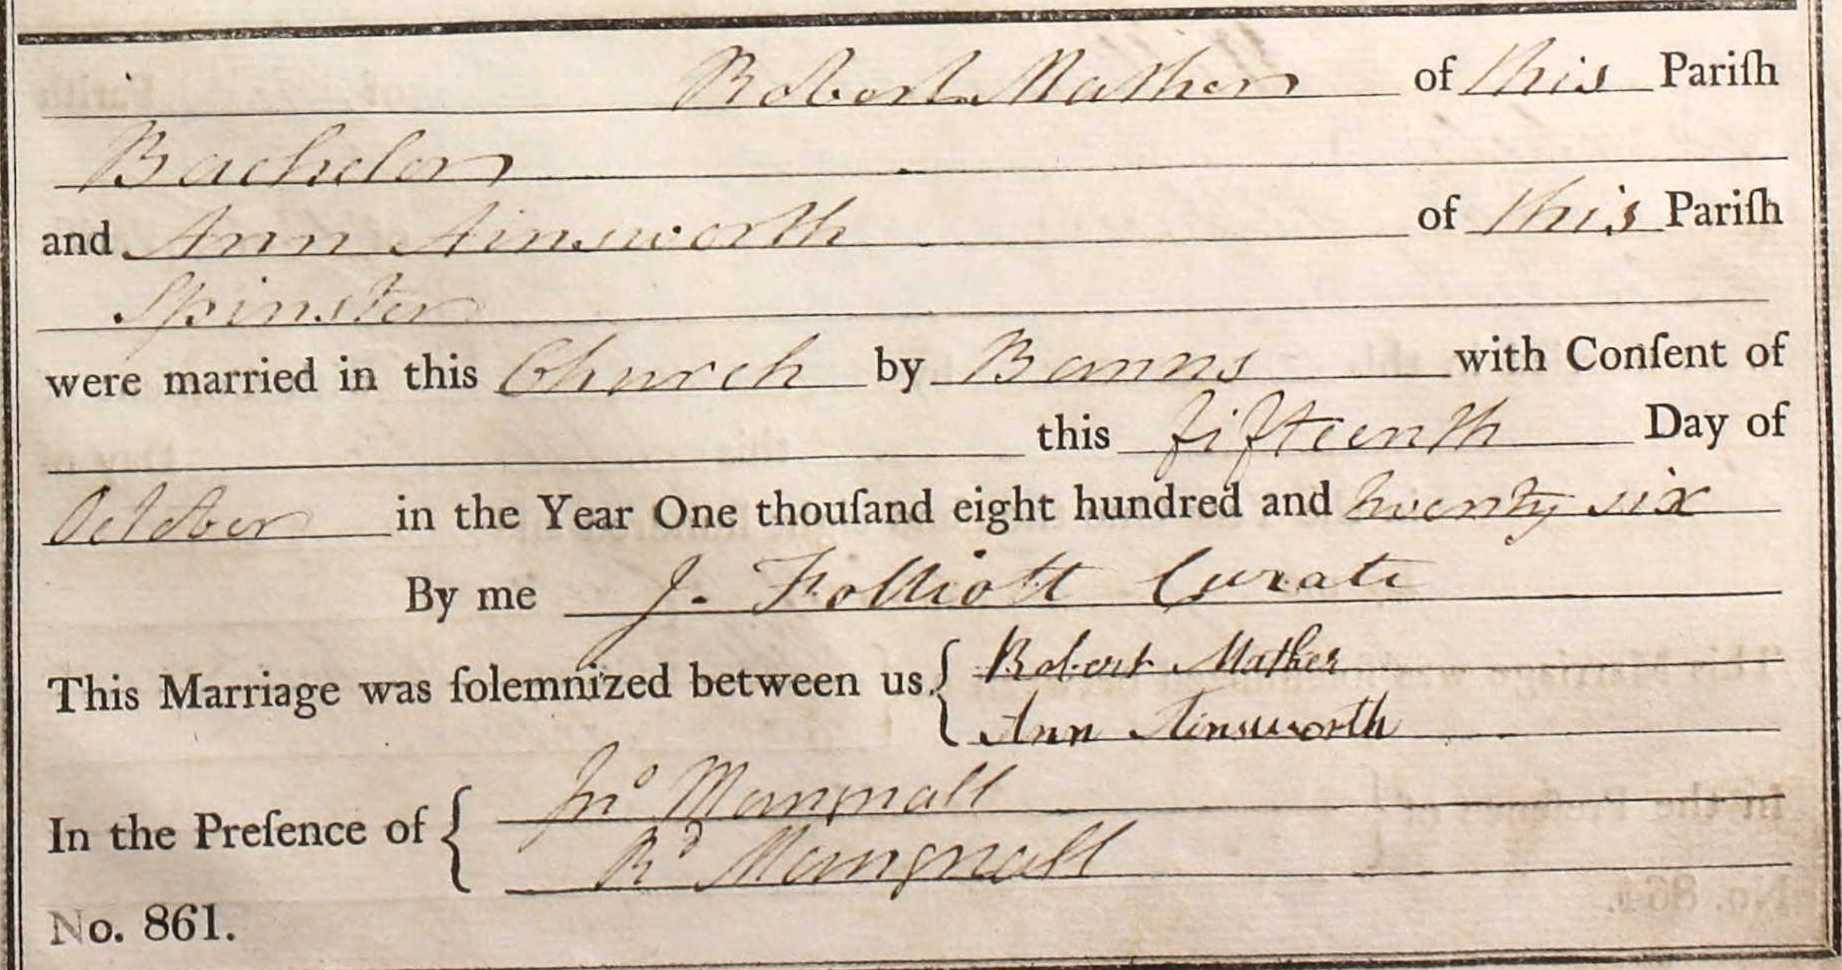 Robert Mather of this Pariſh
Bachelor
and Ann Ainsworth of this Pariſh
Spinster
were married in this Church by Banns with Conſent of
this fifteenth Day of
October in the Year One thouſand eight hundred and twenty six
By me J. Folliott Curate
This Marriage was ſolemnized between us { Robert Mather
Ann Ainsworth
In the Preſence of { Jnº Mangnall
Rᵈ Mangnall
No. 861.